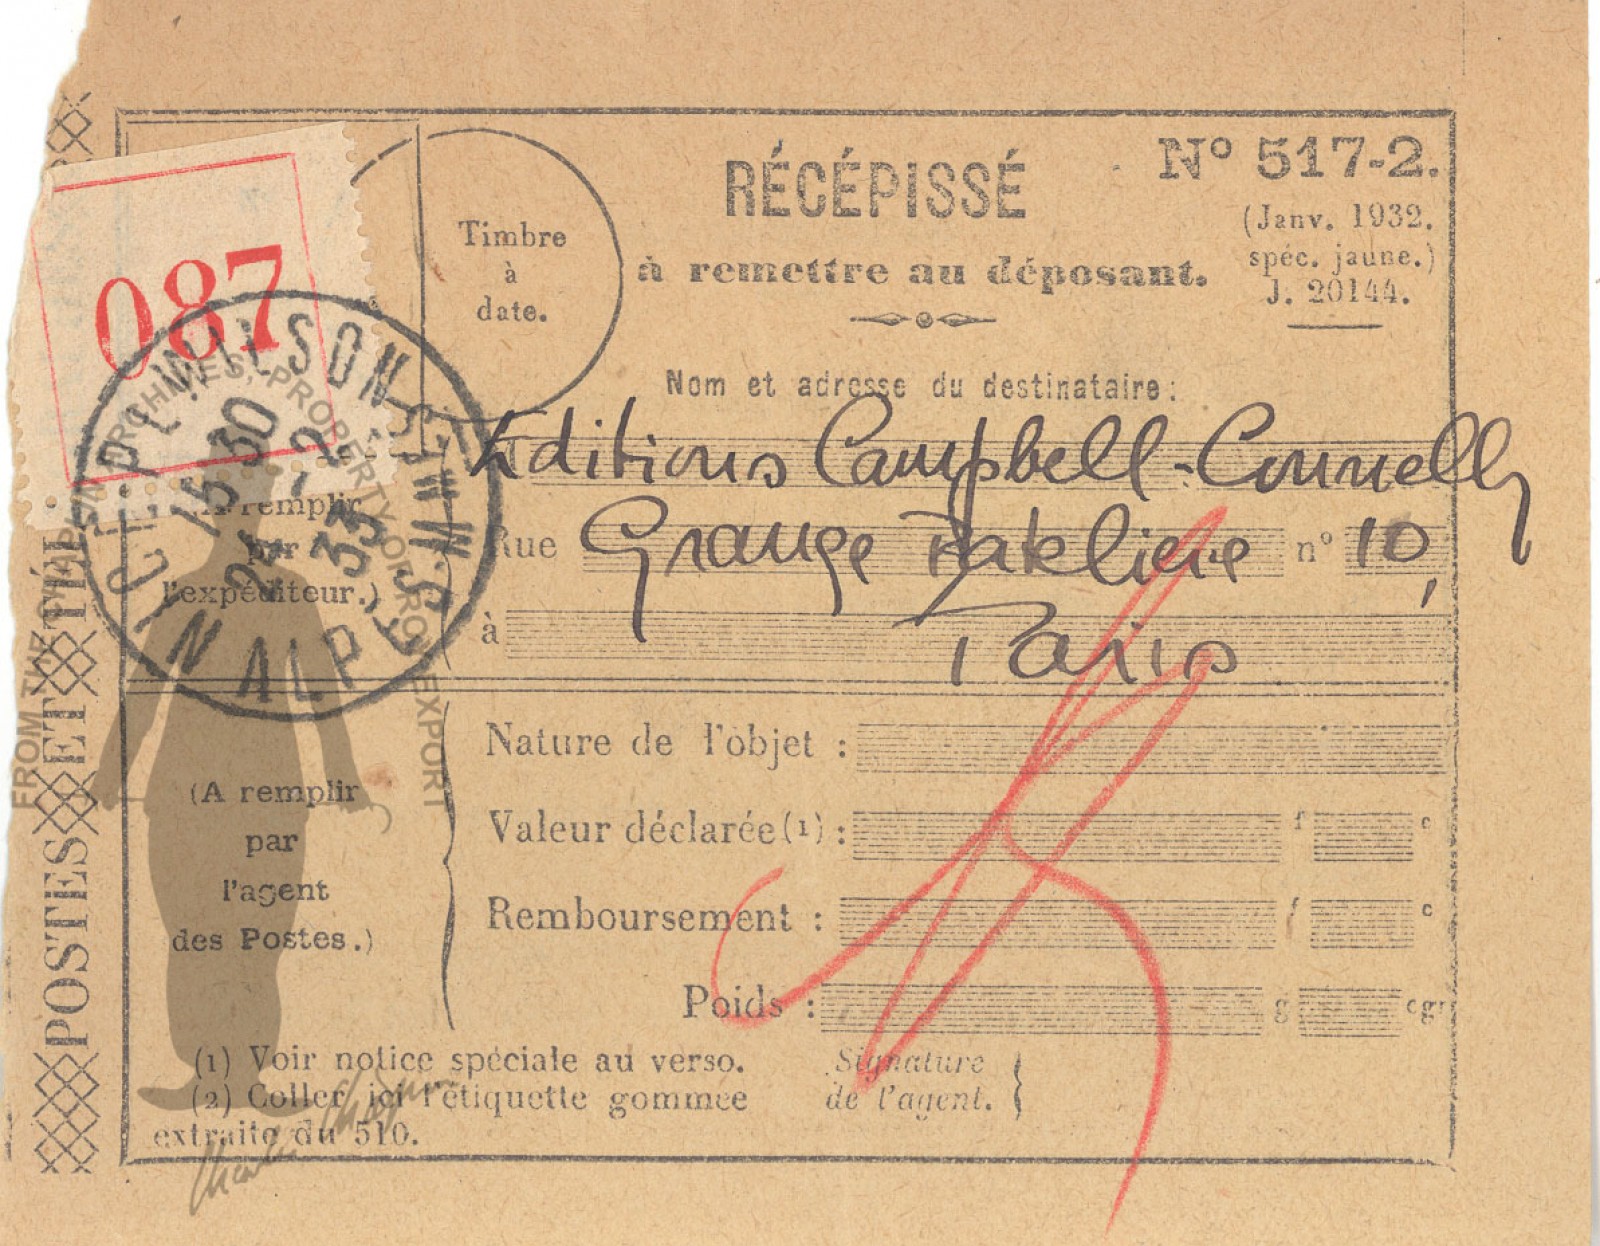 RÉCÉPISSÉ
à remettre au déposant.
N° 517-2.
(Janv. 1932.
spéc. jaune.)
J. 20144.
Timbre
à
date.
087
Nom et adresse du destinataire:
Editions Campbell-Connelly
Rue Grange Batelière n° 10,
à Paris
A remplir
par
l'expéditeur.)
PL WILSON
15 30
2 - 2
33
ALP
POSTES ET TÉL
Nature de l'objet :
Valeur déclarée (1) : f c
Remboursement : f c
Poids : g cgr
(A remplir
par
l'agent
des Postes.)
(1) Voir notice spéciale au verso.
(2) Coller ici l'étiquette gommée
extraite du 510.
Signature
de l'agent.
FROM THE CHAPLIN ARCHIVES, PROPERTY OF ROY EXPORT
Charles Chaplin